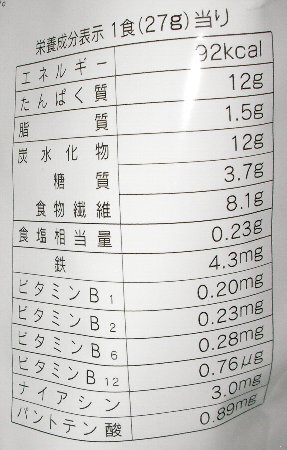 栄養成分表示 1食(27g)当り
エネルギー 92kcal
たんぱく質 12g
脂質 1.5g
炭水化物 12g
糖質 3.7g
食物繊維 8.1g
食塩相当量 0.23g
鉄 4.3mg
ビタミンB1 0.20mg
ビタミンB2 0.23mg
ビタミンB6 0.28mg
ビタミンB12 0.76μg
ナイアシン 3.0mg
パントテン酸 0.89mg